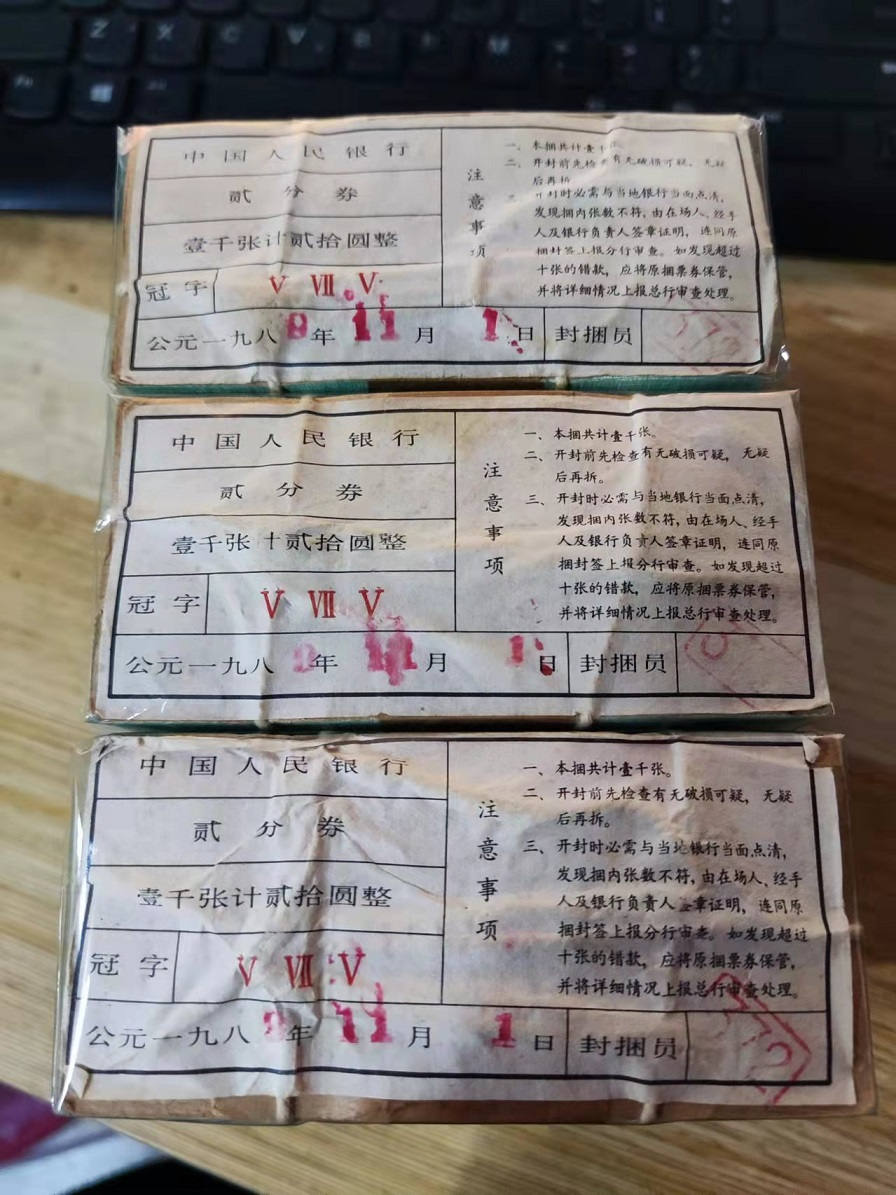 Z X C V B
中国人民银行
贰分券
壹千张计贰拾圆整
冠字 V VII V
公元一九八9年11月1日 封捆员
注意事项
一、本捆共计壹千张。
二、开封前先检查有无破损可疑，无疑
后再拆
开封时必需与当地银行当面点清，
发现捆内张数不符，由在场人、经手
人及银行负责人签章证明，连同原
捆封签上报分行审查。如发现超过
十张的错款，应将原捆票券保管，
并将详细情况上报总行审查处理。
中国人民银行
贰分券
壹千张计贰拾圆整
冠字 V VII V
公元一九八9年11月1日 封捆员
注意事项
一、本捆共计壹千张。
二、开封前先检查有无破损可疑，无疑
后再拆。
三、开封时必需与当地银行当面点清，
发现捆内张数不符，由在场人、经手
人及银行负责人签章证明，连同原
捆封签上报分行审查。如发现超过
十张的错款，应将原捆票券保管，
并将详细情况上报总行审查处理。
中国人民银行
贰分券
壹千张计贰拾圆整
冠字 V VII V
公元一九八9年11月1日 封捆员
注意事项
一、本捆共计壹千张。
二、开封前先检查有无破损可疑，无疑
后再拆。
三、开封时必需与当地银行当面点清，
发现捆内张数不符，由在场人、经手
人及银行负责人签章证明，连同原
捆封签上报分行审查。如发现超过
十张的错款，应将原捆票券保管，
并将详细情况上报总行审查处理。